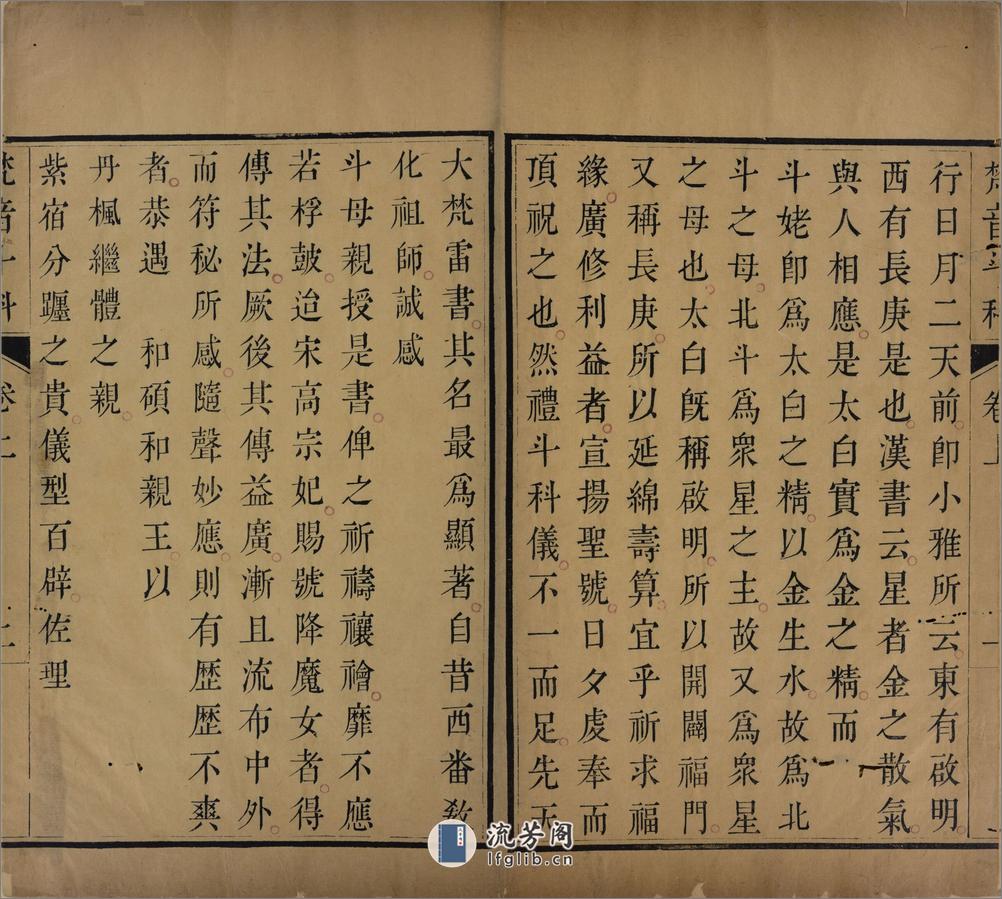 梵音斗科 卷上
行日月二天前即小雅所云東有啟明
西有長庚是也漢書云星者金之散氣
與人相應是太白實爲金之精而
斗姥即爲太白之精以金生水故爲北
斗之母北斗爲衆星之主故又爲衆星
之母也太白既稱啟明所以開闢福門
又稱長庚所以延綿壽算宜乎祈求福
緣廣修利益者宣揚聖號日夕虔奉而
頂祝之也然禮斗科儀不一而足先天
大梵雷書其名最爲顯著自昔西番教
化祖師誠感
斗母親授是書俾之祈禱禳禬靡不應
若桴鼓迨宋高宗妃賜號降魔女者得
傳其法厥後其傳益廣漸且流布中外
而符秘所感隨聲妙應則有歷歷不爽
者恭遇 和碩和親王以
丹楓繼體之親
紫宿分躔之貴儀型百辟佐理
梵音斗科 卷上
流芳阁
lfglib.cn